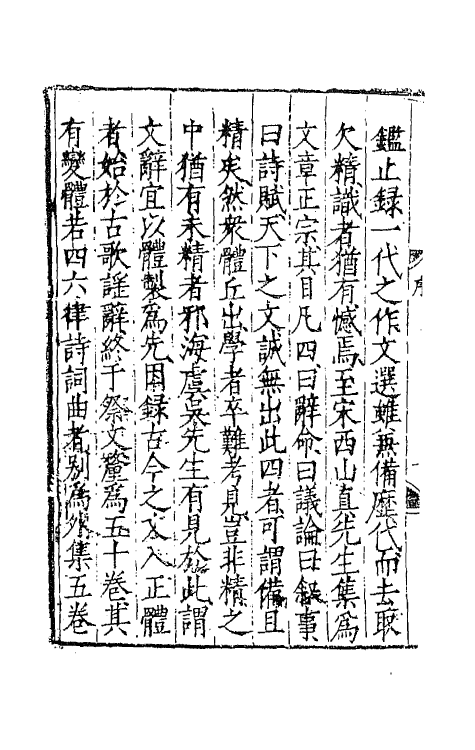 鑑止録一代之作文選雖兼備歷代而去取
欠精識者猶有憾焉至宋西山真先生集爲
文章正宗其目凡四曰辭命曰議論曰敘事
曰詩賦天下之文誠無出此四者可謂備且
精矣然衆體丘出學者卒難考見豈非精之
中猶有未精者邪海虞吳先生有見於此謂
文辭宜以體製爲先因録古今之文入正體
者始於古歌謡辭終于祭文釐爲五十卷其
有變體若四六律詩詞曲者別爲外集五卷
序